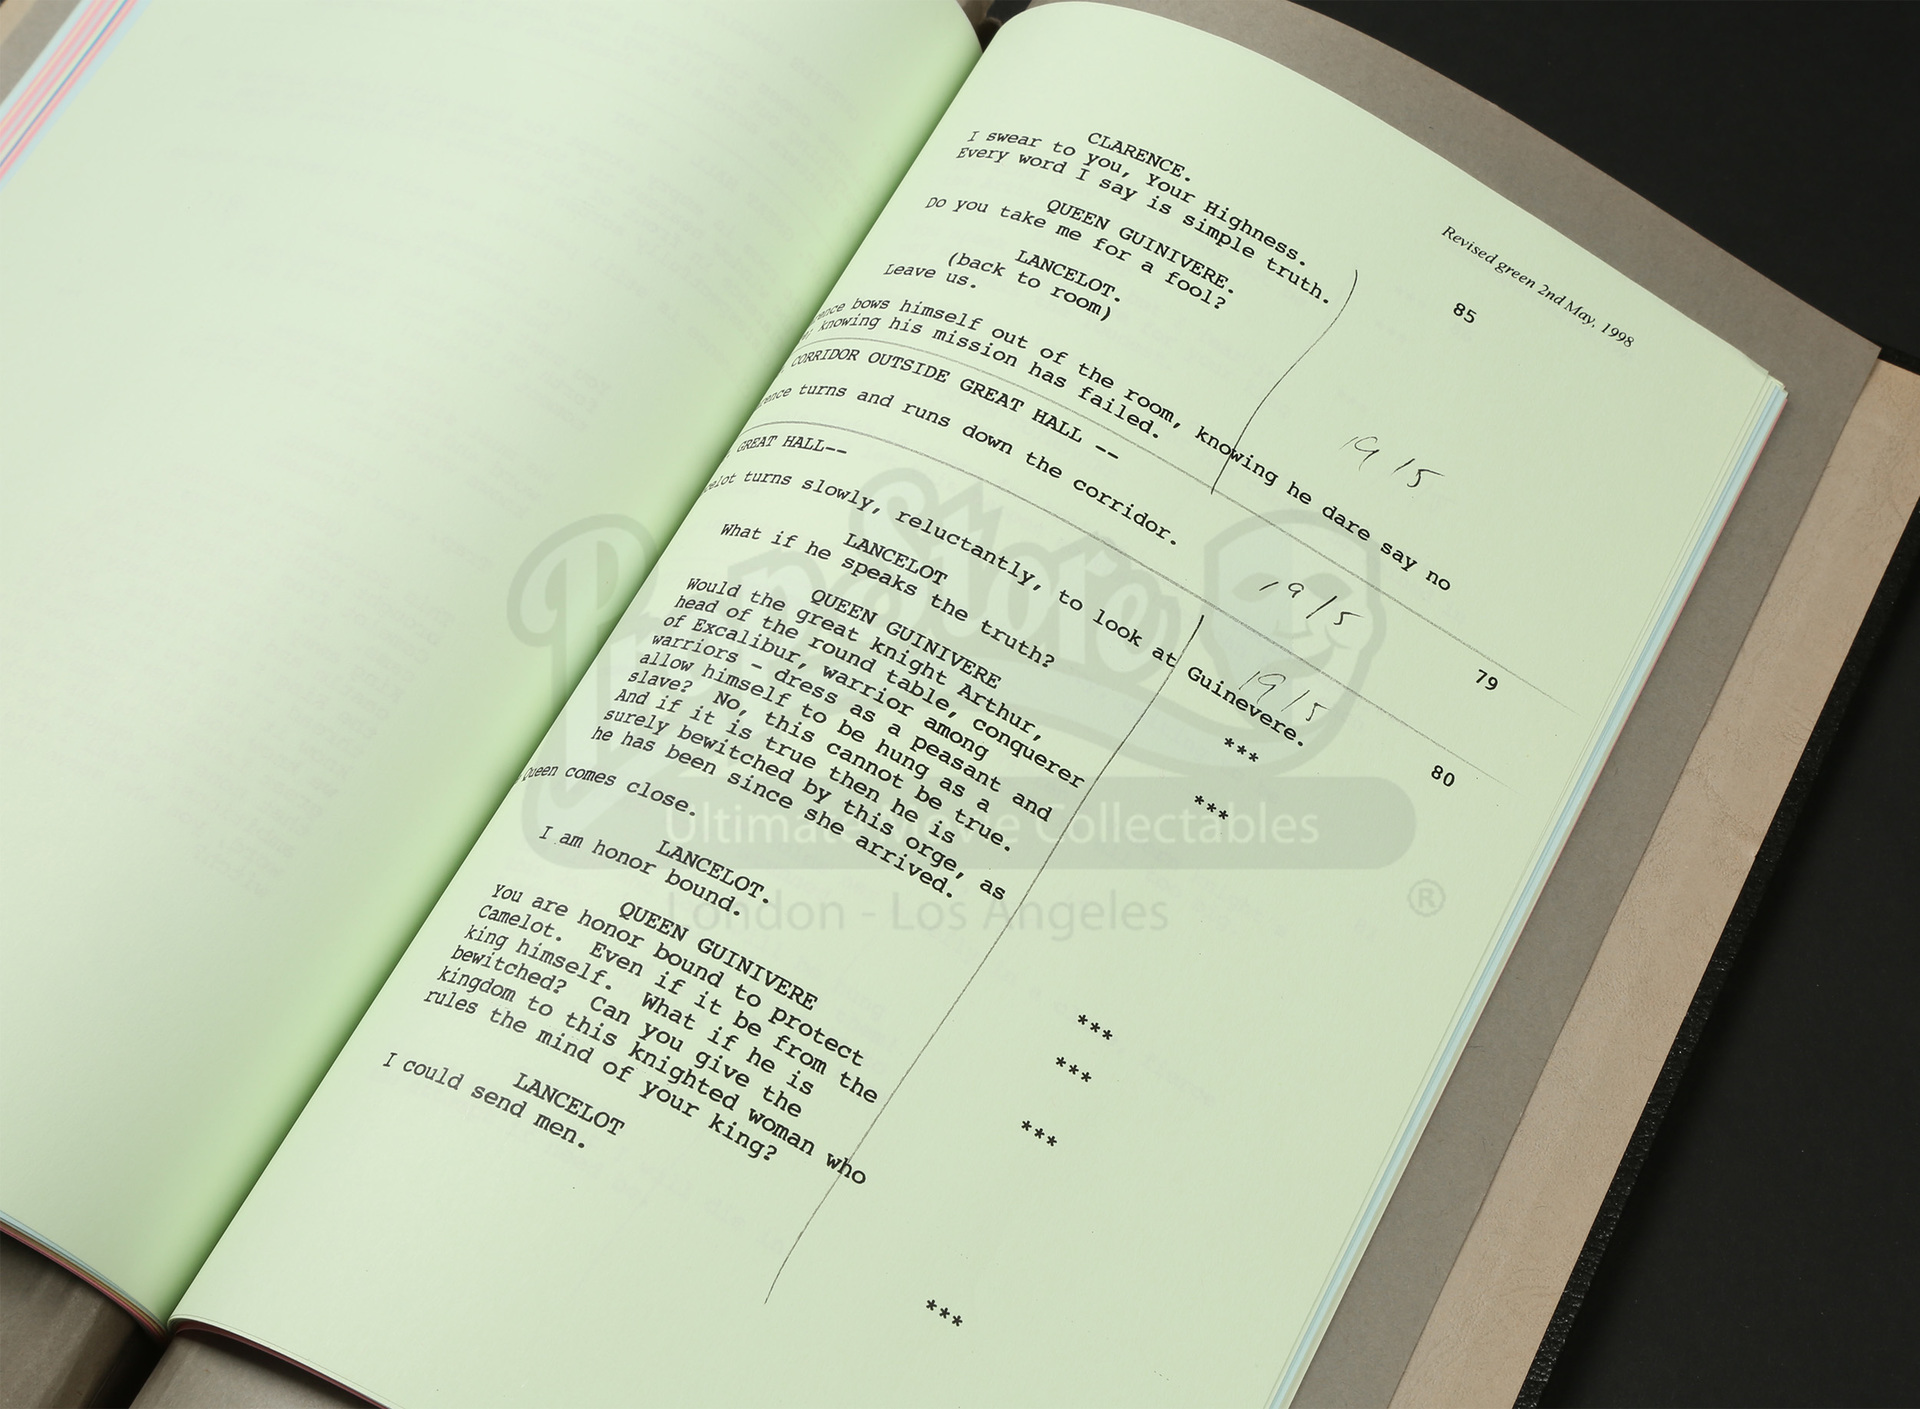 Revised green 2nd May, 1998
85
CLARENCE.
I swear to you, Your Highness.
Every word I say is simple truth.
QUEEN GUINIVERE.
Do you take me for a fool?
LANCELOT.
(back to room)
Leave us.
bows himself out of the room, knowing he dare say no
knowing his mission has failed.
19/5
CORRIDOR OUTSIDE GREAT HALL --
79
turns and runs down the corridor.
19/5
GREAT HALL--
80
turns slowly, reluctantly, to look at Guinevere.
19/5
LANCELOT
***
What if he speaks the truth?
QUEEN GUINIVERE
***
Would the great knight Arthur,
head of the round table, conquerer
of Excalibur, warrior among
warriors - dress as a peasant and
allow himself to be hung as a
slave? No, this cannot be true.
And if it is true then he is
surely bewitched by this orge, as
he has been since she arrived.
Queen comes close.
***
LANCELOT.
***
I am honor bound.
QUEEN GUINIVERE
***
You are honor bound to protect
Camelot. Even if it be from the
king himself. What if he is
bewitched? Can you give the
kingdom to this knighted woman who
rules the mind of your king?
LANCELOT
***
I could send men.
Prop Store
Ultimate Movie Collectables
London - Los Angeles
®